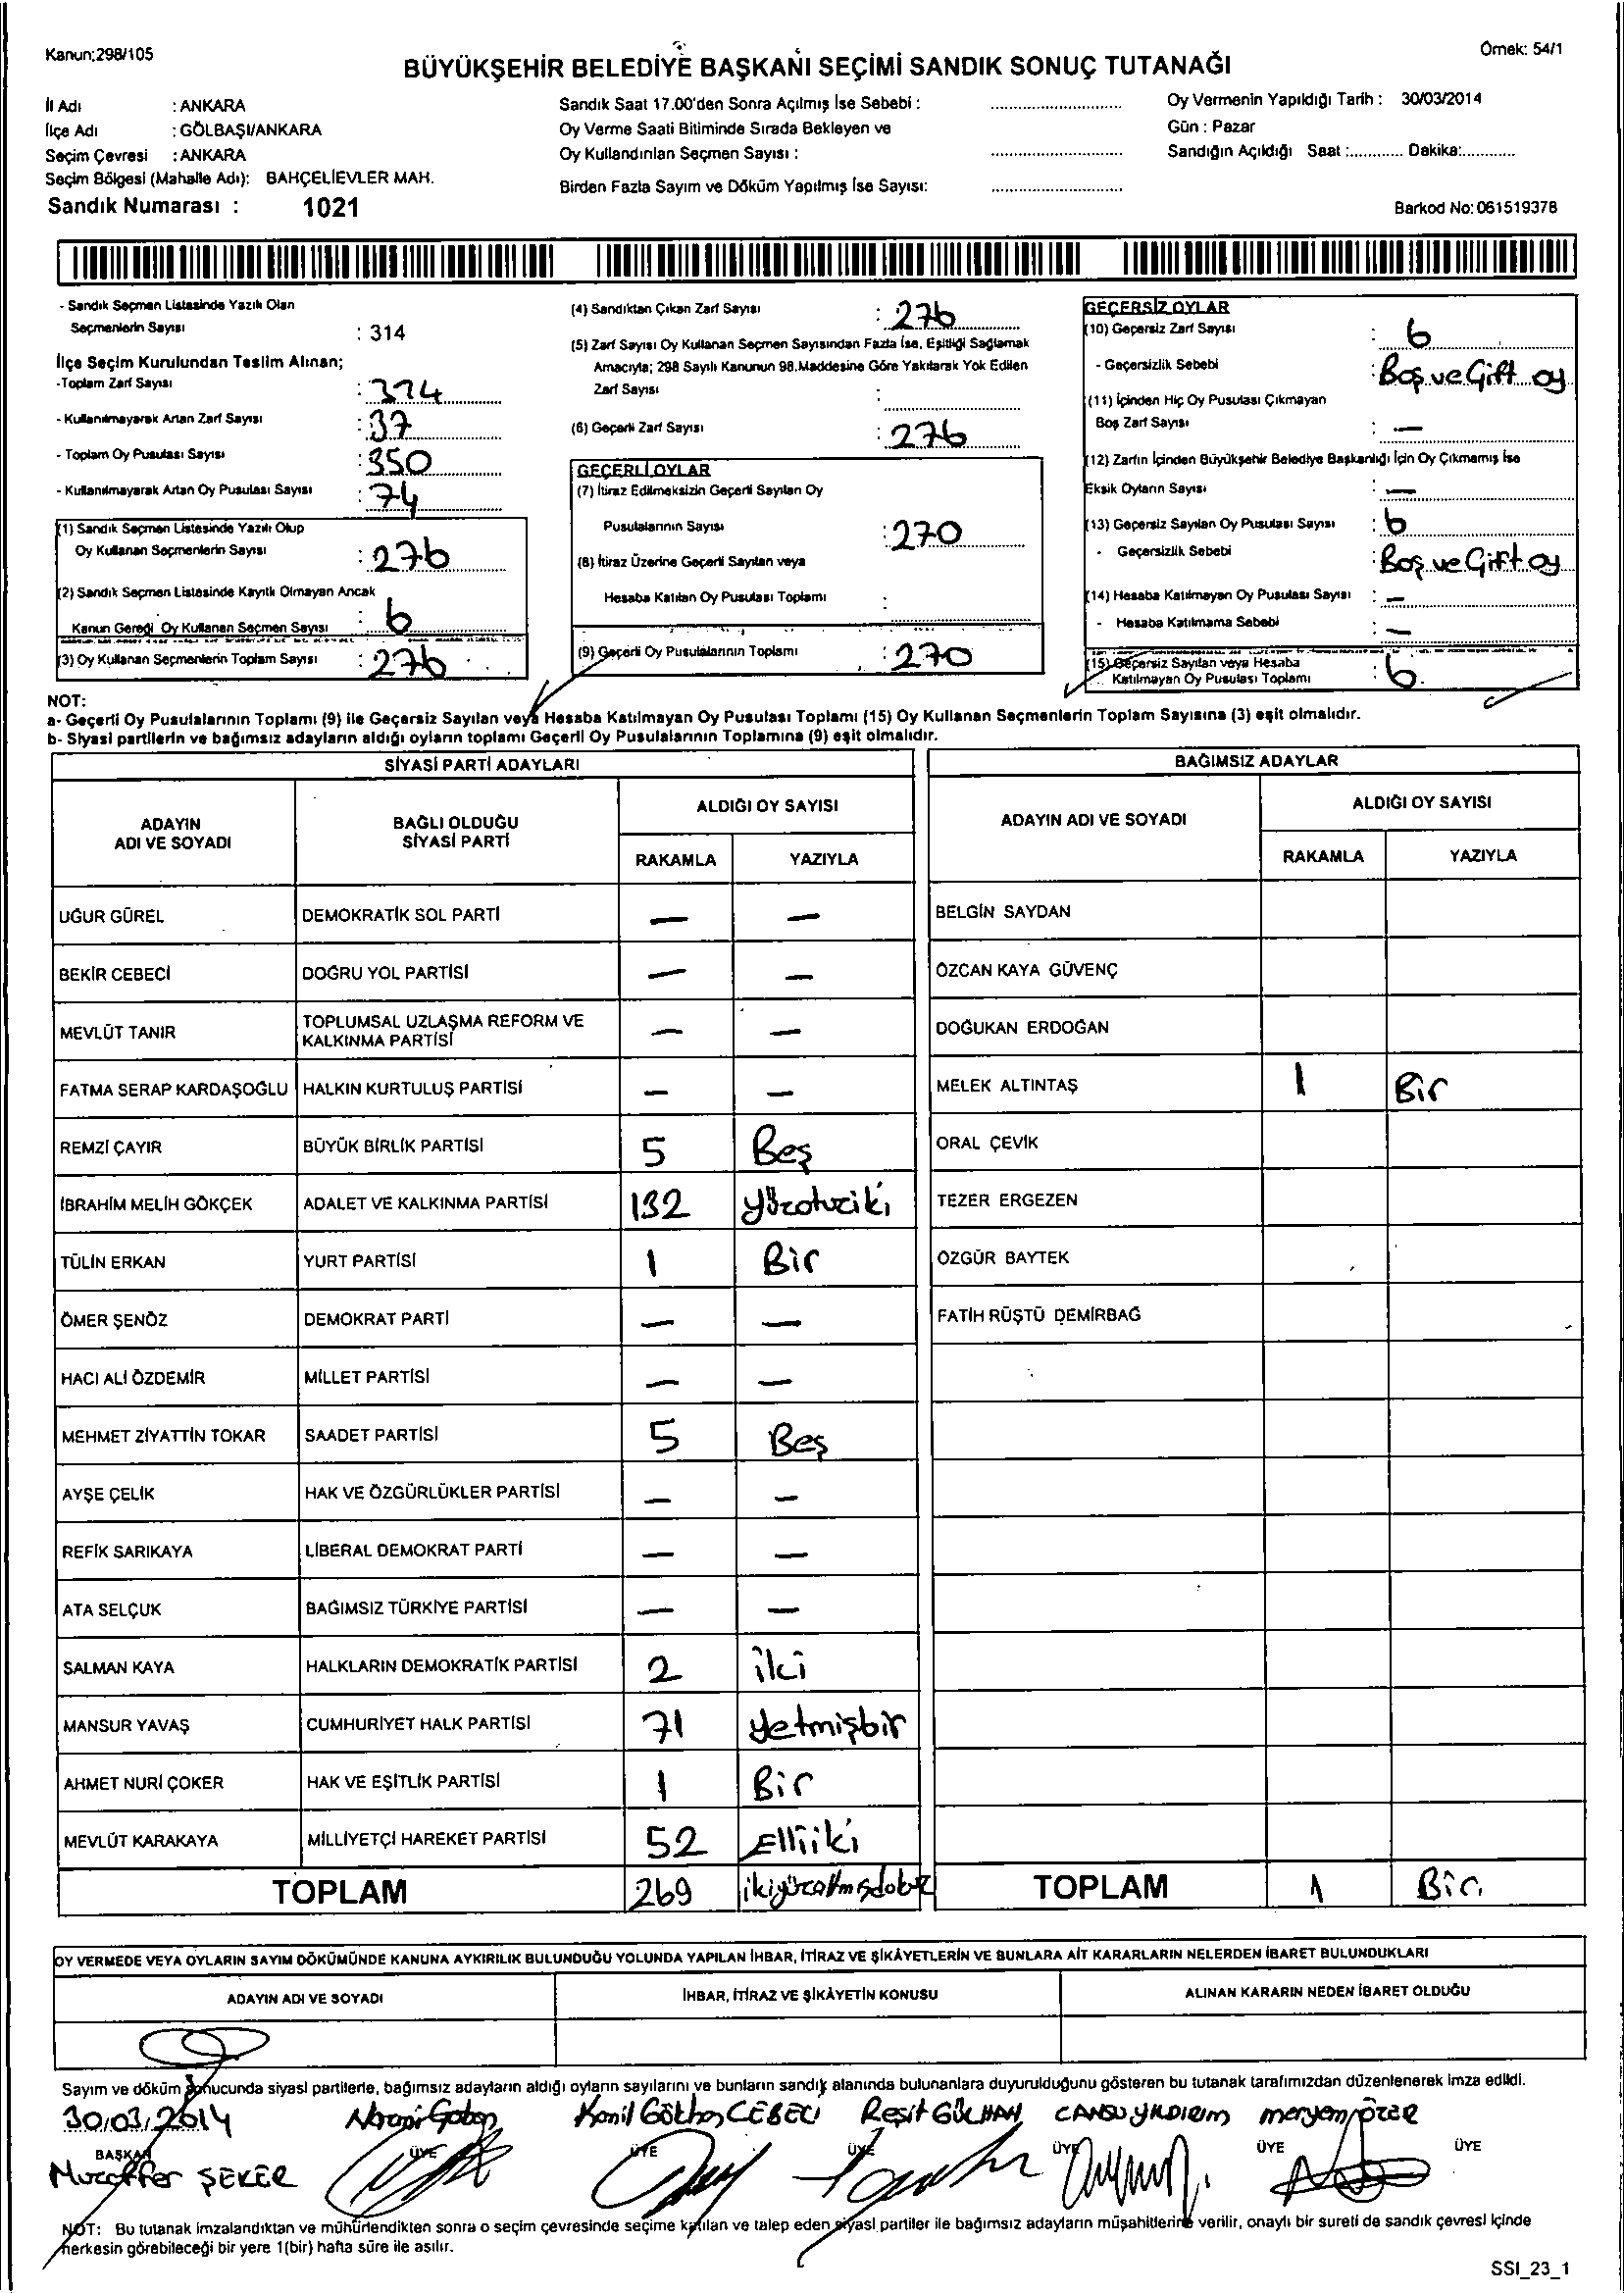 Kanun;298/105
Örnek: 54/1
BÜYÜKŞEHİR BELEDİYE BAŞKANI SEÇİMİ SANDIK SONUÇ TUTANAĞI
İl Adı : ANKARA
İlçe Adı : GÖLBAŞI/ANKARA
Seçim Çevresi : ANKARA
Seçim Bölgesi (Mahalle Adı): BAHÇELİEVLER MAH.
Sandık Numarası : 1021
Sandık Saat 17.00'den Sonra Açılmış İse Sebebi :
Oy Verme Saati Bitiminde Sırada Bekleyen ve
Oy Kullandırılan Seçmen Sayısı :
Birden Fazla Sayım ve Döküm Yapılmış İse Sayısı:
Oy Vermenin Yapıldığı Tarih : 30/03/2014
Gün : Pazar
Sandığın Açıldığı Saat :............ Dakika:............
Barkod No: 061519378
- Sandık Seçmen Listesinde Yazılı Olan
Seçmenlerin Sayısı : 314
İlçe Seçim Kurulundan Teslim Alınan;
-Toplam Zarf Sayısı : 314
- Kullanılmayarak Artan Zarf Sayısı : 37
- Toplam Oy Pusulası Sayısı : 350
- Kullanılmayarak Artan Oy Pusulası Sayısı : 74
(1) Sandık Seçmen Listesinde Yazılı Olup
Oy Kullanan Seçmenlerin Sayısı : 276
(2) Sandık Seçmen Listesinde Kayıtlı Olmayan Ancak
Kanun Gereği Oy Kullanan Seçmen Sayısı : 6
(3) Oy Kullanan Seçmenlerin Toplam Sayısı : 276
(4) Sandıktan Çıkan Zarf Sayısı : 276
(5) Zarf Sayısı Oy Kullanan Seçmen Sayısından Fazla İse, Eşitliği Sağlamak
Amacıyla; 298 Sayılı Kanunun 98.Maddesine Göre Yakılarak Yok Edilen
Zarf Sayısı :
(6) Geçerli Zarf Sayısı : 276
GEÇERLİ OYLAR
(7) İtiraz Edilmeksizin Geçerli Sayılan Oy
Pusulalarının Sayısı : 270
(8) İtiraz Üzerine Geçerli Sayılan veya
Hesaba Katılan Oy Pusulası Toplamı :
(9) Geçerli Oy Pusulalarının Toplamı : 270
GEÇERSİZ OYLAR
(10) Geçersiz Zarf Sayısı : 6
- Geçersizlik Sebebi : Boş ve Çift oy
(11) İçinden Hiç Oy Pusulası Çıkmayan
Boş Zarf Sayısı : —
(12) Zarfın İçinden Büyükşehir Belediye Başkanlığı İçin Oy Çıkmamış İse
Eksik Oyların Sayısı : —
(13) Geçersiz Sayılan Oy Pusulası Sayısı : 6
- Geçersizlik Sebebi : Boş ve Çift oy
(14) Hesaba Katılmayan Oy Pusulası Sayısı : —
- Hesaba Katılmama Sebebi : —
(15) Geçersiz Sayılan veya Hesaba
Katılmayan Oy Pusulası Toplamı : 6
NOT:
a- Geçerli Oy Pusulalarının Toplamı (9) ile Geçersiz Sayılan veya Hesaba Katılmayan Oy Pusulası Toplamı (15) Oy Kullanan Seçmenlerin Toplam Sayısına (3) eşit olmalıdır.
b- Siyasi partilerin ve bağımsız adayların aldığı oyların toplamı Geçerli Oy Pusulalarının Toplamına (9) eşit olmalıdır.
SİYASİ PARTİ ADAYLARI
ADAYIN ADI VE SOYADI
BAĞLI OLDUĞU SİYASİ PARTİ
ALDIĞI OY SAYISI
RAKAMLA YAZIYLA
UĞUR GÜREL DEMOKRATİK SOL PARTİ — —
BEKİR CEBECİ DOĞRU YOL PARTİSİ — —
MEVLÜT TANIR TOPLUMSAL UZLAŞMA REFORM VE KALKINMA PARTİSİ — —
FATMA SERAP KARDAŞOĞLU HALKIN KURTULUŞ PARTİSİ — —
REMZİ ÇAYIR BÜYÜK BİRLİK PARTİSİ 5 Beş
İBRAHİM MELİH GÖKÇEK ADALET VE KALKINMA PARTİSİ 132 yüzotuziki
TÜLİN ERKAN YURT PARTİSİ 1 Bir
ÖMER ŞENÖZ DEMOKRAT PARTİ — —
HACI ALİ ÖZDEMİR MİLLET PARTİSİ — —
MEHMET ZİYATTİN TOKAR SAADET PARTİSİ 5 Beş
AYŞE ÇELİK HAK VE ÖZGÜRLÜKLER PARTİSİ — —
REFİK SARIKAYA LİBERAL DEMOKRAT PARTİ — —
ATA SELÇUK BAĞIMSIZ TÜRKİYE PARTİSİ — —
SALMAN KAYA HALKLARIN DEMOKRATİK PARTİSİ 2 iki
MANSUR YAVAŞ CUMHURİYET HALK PARTİSİ 71 yetmişbir
AHMET NURİ ÇOKER HAK VE EŞİTLİK PARTİSİ 1 Bir
MEVLÜT KARAKAYA MİLLİYETÇİ HAREKET PARTİSİ 52 Elliiki
TOPLAM 269 ikiyüzaltmışdokuz
BAĞIMSIZ ADAYLAR
ADAYIN ADI VE SOYADI
ALDIĞI OY SAYISI
RAKAMLA YAZIYLA
BELGİN SAYDAN
ÖZCAN KAYA GÜVENÇ
DOĞUKAN ERDOĞAN
MELEK ALTINTAŞ 1 Bir
ORAL ÇEVİK
TEZER ERGEZEN
ÖZGÜR BAYTEK
FATİH RÜŞTÜ DEMİRBAĞ
TOPLAM 1 Bir
OY VERMEDE VEYA OYLARIN SAYIM DÖKÜMÜNDE KANUNA AYKIRILIK BULUNDUĞU YOLUNDA YAPILAN İHBAR, İTİRAZ VE ŞİKÂYETLERİN VE BUNLARA AİT KARARLARIN NELERDEN İBARET BULUNDUKLARI
ADAYIN ADI VE SOYADI İHBAR, İTİRAZ VE ŞİKÂYETİN KONUSU ALINAN KARARIN NEDEN İBARET OLDUĞU
Sayım ve döküm sonucunda siyasi partilerle, bağımsız adayların aldığı oyların sayılarını ve bunların sandık alanında bulunanlara duyurulduğunu gösteren bu tutanak tarafımızdan düzenlenerek imza edildi.
30/03/2014 Kamil Gökhan CEBECİ Reşit GÜLHAN CANSU YILDIRIM meryem ÖZER
BAŞKAN ÜYE ÜYE ÜYE ÜYE ÜYE ÜYE
Muzaffer ŞEKER
NOT: Bu tutanak imzalandıktan ve mühürlendikten sonra o seçim çevresinde seçime katılan ve talep eden siyasi partiler ile bağımsız adayların müşahitlerine verilir, onaylı bir sureti de sandık çevresi içinde
herkesin görebileceği bir yere 1(bir) hafta süre ile asılır.
SSI_23_1